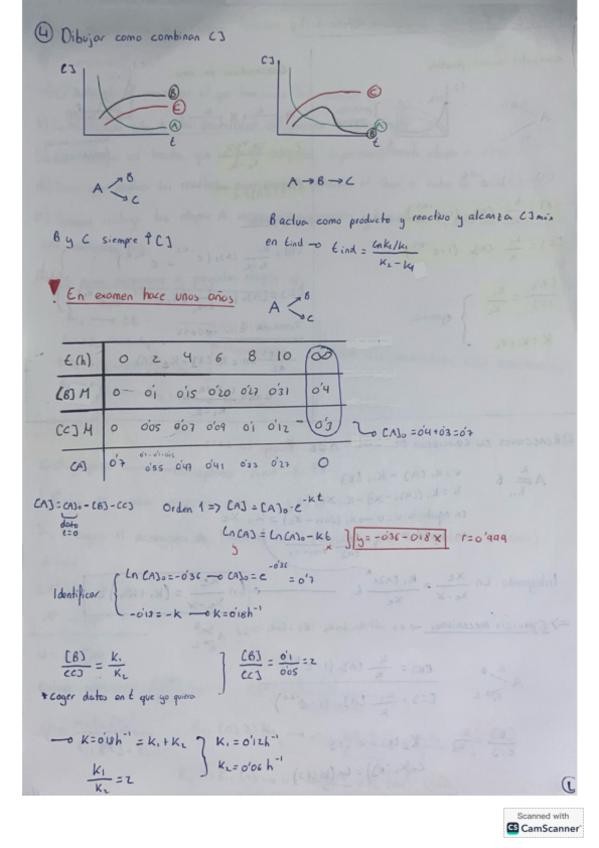 ④ Dibujar como combinan [ ]
[ ] B C A t
[ ] C A B t
A B C
A → B → C
B actua como producto y reactivo y alcanza [ ] máx
B y C siempre ↑ [ ]
en tind → tind = ln k2/k1 / k2 - k1
! En examen hace unos años
A B C
t(h) 0 2 4 6 8 10 ∞
[B] M 0 0'1 0'15 0'20 0'27 0'31 0'4
[C] M 0 0'05 0'07 0'09 0'1 0'12 0'3 → [A]₀ = 0'4 + 0'3 = 0'7
[A] 0'7 0'55 0'47 0'41 0'33 0'27 0
[A] = [A]₀ - [B] - [C] Orden 1 => [A] = [A]₀ · e^-kt
dato
t=0
Ln[A] = Ln[A]₀ - kt } y = -0'36 - 0'18 x r = 0'999
y x
Identificar
Ln[A]₀ = -0'36 → [A]₀ = e^-0'36 = 0'7
-0'18 = -k → k = 0'18 h⁻¹
[B] / [C] = k1 / k2 ] [B] / [C] = 0'1 / 0'05 = 2
* Coger datos en t que yo quiera
→ k = 0'18 h⁻¹ = k1 + k2 } k1 = 0'12 h⁻¹
k1 / k2 = 2 k2 = 0'06 h⁻¹
Scanned with
CS CamScanner